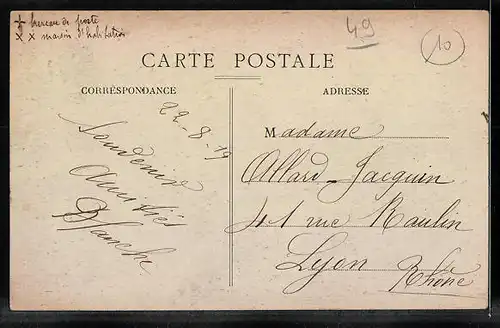 + bureau de poste
x x maison d'habitation
49
10
CARTE POSTALE
CORRESPONDANCE
ADRESSE
22-8-19
Souvenir
Amitiés
Blanche
Madame
Allard-Jacquin
41 rue Raulin
Lyon
Rhône